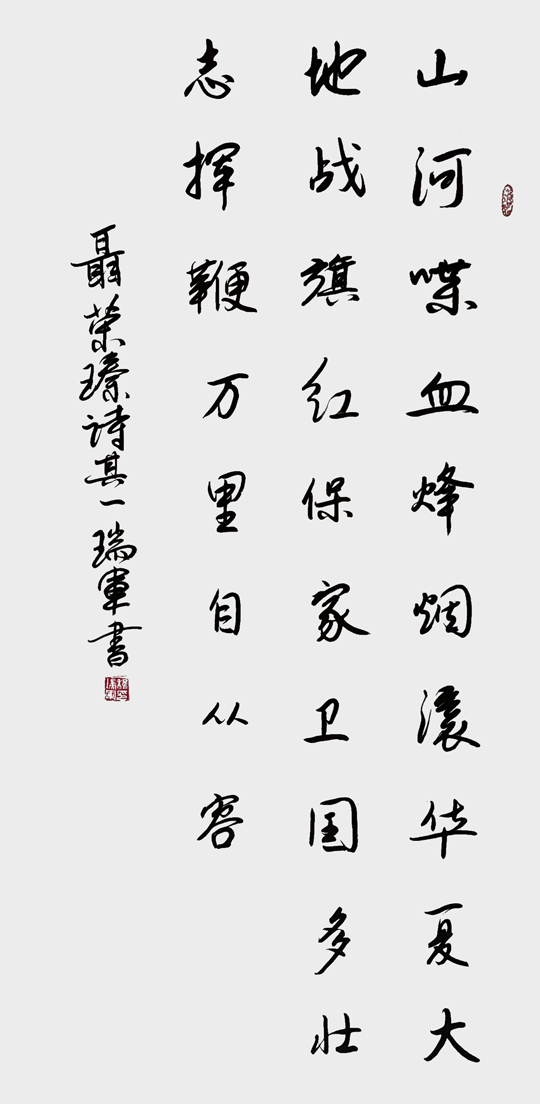 山河喋血烽烟滚华夏大
地战旗红保家卫国多壮
志挥鞭万里自从容
聂荣臻诗其一瑞军书